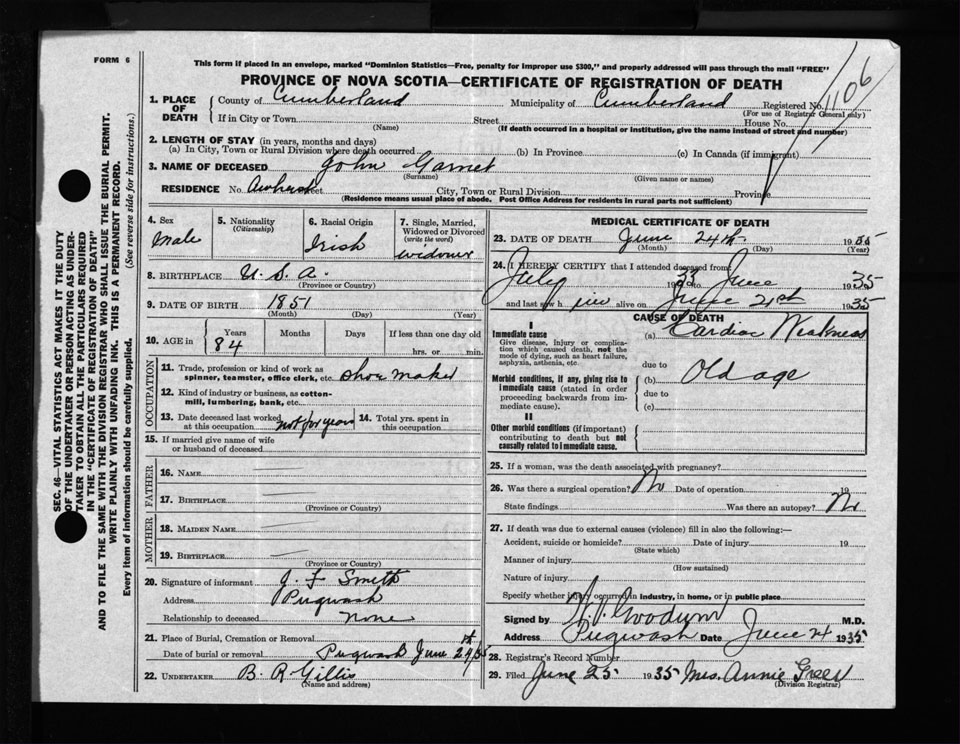 FORM 6
This form if placed in an envelope, marked "Dominion Statistics—Free, penalty for improper use $300," and properly addressed will pass through the mail "FREE"
PROVINCE OF NOVA SCOTIA—CERTIFICATE OF REGISTRATION OF DEATH
1106
1. PLACE OF DEATH
County of Cumberland Municipality of Cumberland Registered No.
(For use of Registrar General only)
If in City or Town Street House No.
(Name) (If death occurred in a hospital or institution, give the name instead of street and number)
2. LENGTH OF STAY (in years, months and days)
(a) In City, Town or Rural Division where death occurred (b) In Province (c) In Canada (if immigrant)
3. NAME OF DECEASED John Garnet
(Surname) (Given name or names)
RESIDENCE No. Amherst Street City, Town or Rural Division Province
(Residence means usual place of abode. Post Office Address for residents in rural parts not sufficient)
4. Sex
Male
5. Nationality
(Citizenship)
6. Racial Origin
Irish
7. Single, Married, Widowed or Divorced
(write the word)
widower
8. BIRTHPLACE U.S.A.
(Province or County)
9. DATE OF BIRTH 1851
(Month) (Day) (Year)
10. AGE in Years Months Days If less than one day old
84 hrs. or min.
OCCUPATION
11. Trade, profession or kind of work as
spinner, teamster, office clerk, etc. shoe maker
12. Kind of industry or business, as cotton-
mill, lumbering, bank, etc.
13. Date deceased last worked
at this occupation not for years
14. Total yrs. spent in
this occupation
15. If married give name of wife
or husband of deceased
FATHER
16. NAME
17. BIRTHPLACE
(Province or County)
MOTHER
18. MAIDEN NAME
19. BIRTHPLACE
(Province or County)
20. Signature of informant J. F Smith
Address Pugwash
Relationship to deceased none
21. Place of Burial, Cremation or Removal
Date of burial or removal Pugwash June
22. UNDERTAKER B. R Gillis
(Name and address)
MEDICAL CERTIFICATE OF DEATH
23. DATE OF DEATH June 24th 1935
(Month) (Day) (Year)
24. I HEREBY CERTIFY that I attended deceased from
July 1933 to June 1935
and last saw him alive on June 21st 1935
CAUSE OF DEATH
I
Immediate cause
Give disease, injury or complica-
tion which caused death, not the
mode of dying, such as heart failure,
asphyxia, asthenia, etc.
(a) Cardiac Weakness
due to
Morbid conditions, if any, giving rise to
immediate cause (stated in order
proceeding backwards from im-
mediate cause).
(b) Old age
due to
(c)
II
Other morbid conditions (if important)
contributing to death but not
causally related to immediate cause.
25. If a woman, was the death associated with pregnancy?
26. Was there a surgical operation? No Date of operation 19
State findings Was there an autopsy? No
27. If death was due to external causes (violence) fill in also the following:—
Accident, suicide or homicide? Date of injury 19
(State which)
Manner of injury
(How sustained)
Nature of injury
Specify whether injury occurred in industry, in home, or in public place
Signed by M.D.
Address Pugwash Date June 24 1935
28. Registrar's Record Number
29. Filed June 25 1935 Mrs. Annie Greer
(Division Registrar)
SEC. 46—VITAL STATISTICS ACT MAKES IT THE DUTY
OF THE UNDERTAKER OR PERSON ACTING AS UNDER-
TAKER TO OBTAIN ALL THE PARTICULARS REQUIRED
IN THE "CERTIFICATE OF REGISTRATION OF DEATH"
AND TO FILE THE SAME WITH THE DIVISION REGISTRAR WHO SHALL ISSUE THE BURIAL PERMIT.
WRITE PLAINLY WITH UNFADING INK. THIS IS A PERMANENT RECORD.
Every item of information should be carefully supplied. (See reverse side for instructions.)